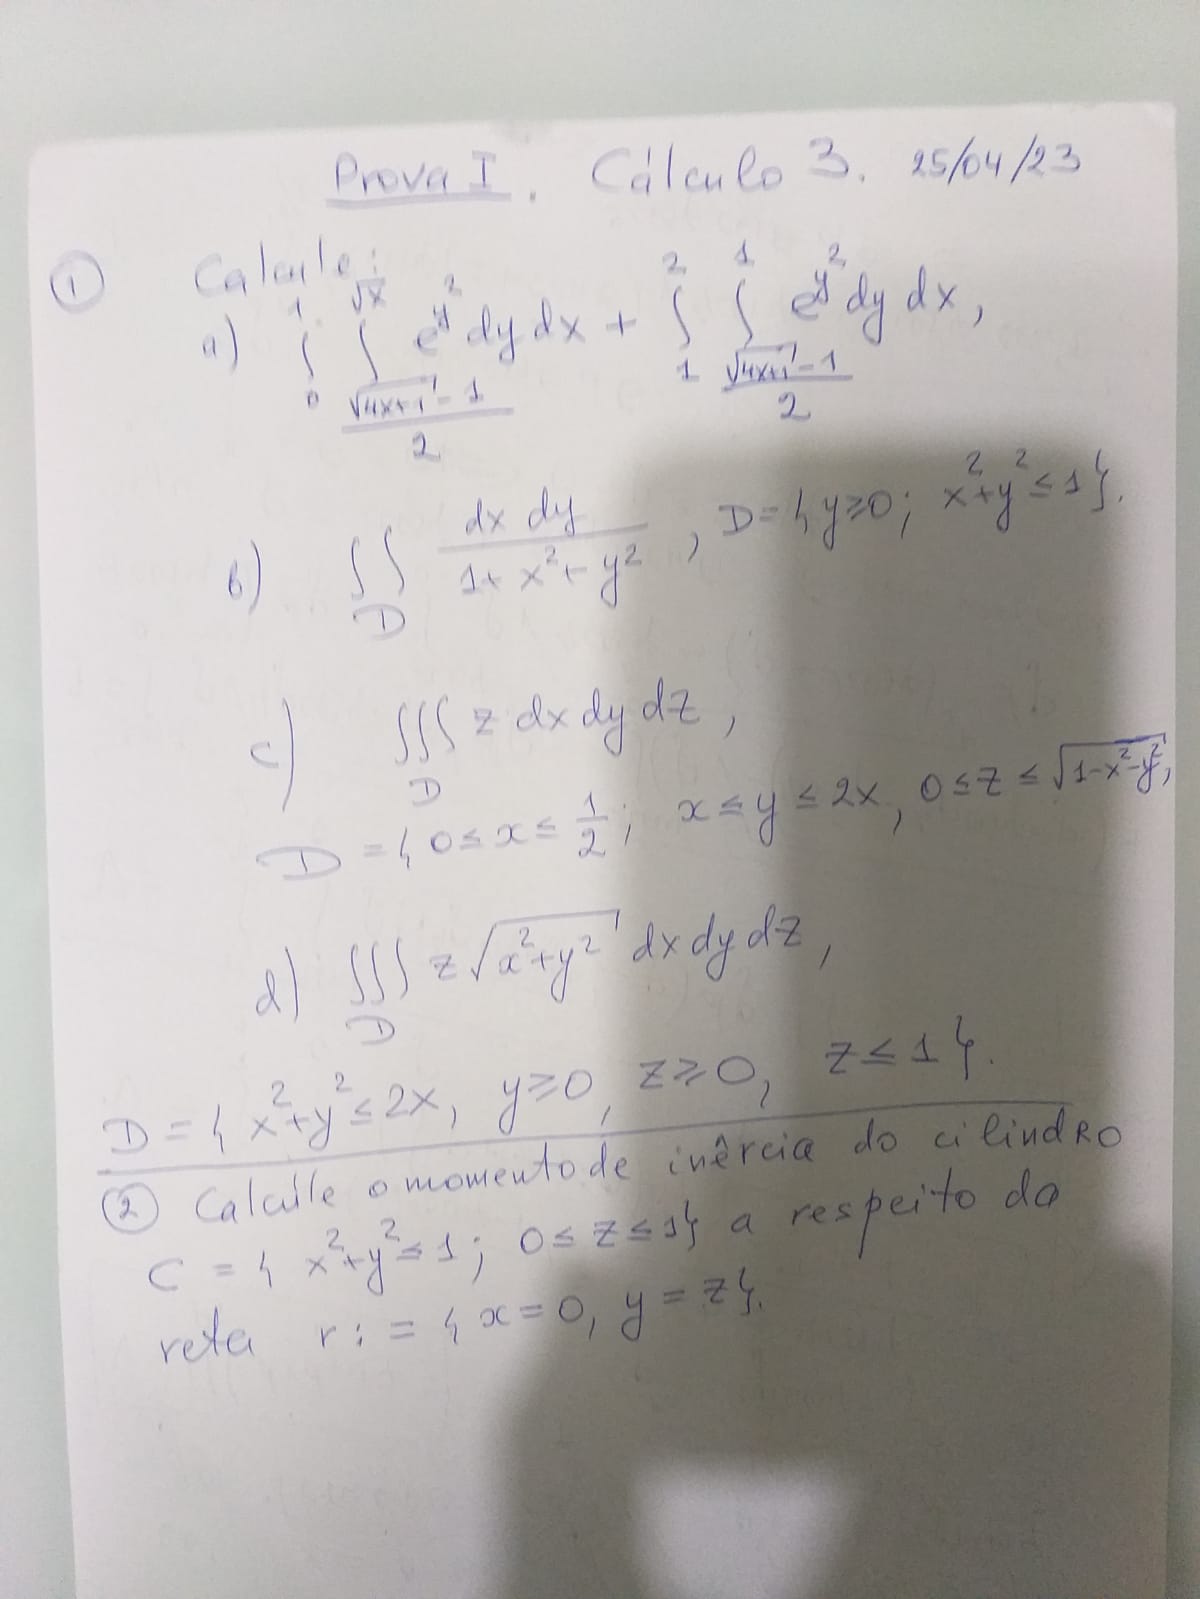 Prova I. Cálculo 3. 25/04/23
① Calcule:
a) ∫₀¹ ∫_{(√(4x+1) - 1)/2}^{√x} e^{y²} dy dx + ∫₁² ∫_{(√(4x+1) - 1)/2}^{1} e^{y²} dy dx,
b) ∬_D dx dy / (1 + x² + y²), D = { y ≥ 0; x² + y² ≤ 1 }.
c) ∭_D z dx dy dz,
D = { 0 ≤ x ≤ 1/2; x ≤ y ≤ 2x, 0 ≤ z ≤ √(1-x²-y²),
d) ∭_D z √(x² + y²) dx dy dz,
D = { x² + y² ≤ 2x, y ≥ 0, z ≥ 0, z ≤ 1 }.
② Calcule o momento de inércia do cilindro
C = { x² + y² ≤ 1; 0 ≤ z ≤ 1 } a respeito da
reta r := { x = 0, y = z }.